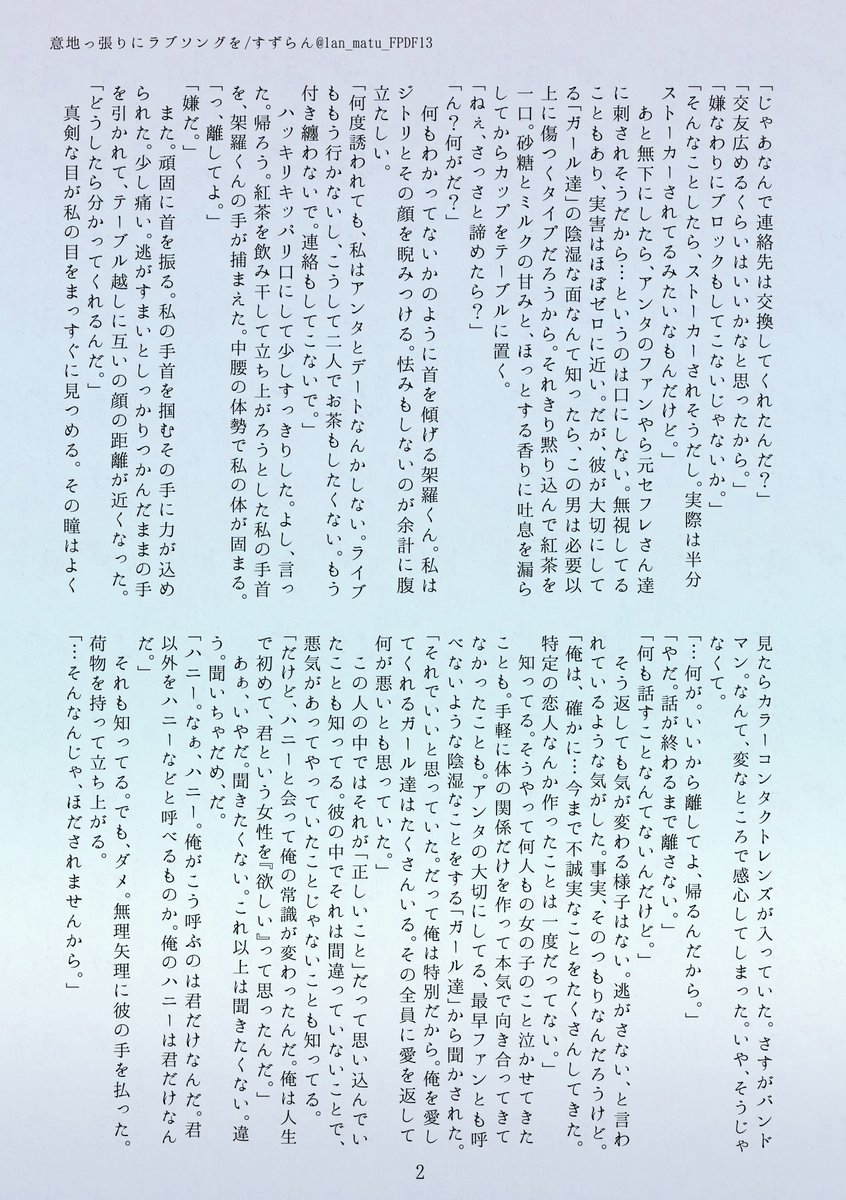 意地っ張りにラブソングを/すずらん@lan_matu_FPDF13
「じゃあなんで連絡先は交換してくれたんだ？」
「交友広めるくらいはいいかなと思ったから。」
「嫌なわりにブロックもしてこないじゃないか。」
「そんなことしたら、ストーカーされそうだし。実際は半分
ストーカーされてるみたいなもんだけど。」
　あと無下にしたら、アンタのファンやら元セフレさん達
に刺されそうだから…というのは口にしない。無視してる
こともあり、実害はほぼゼロに近い。だが、彼が大切にして
る「ガール達」の陰湿な面なんて知ったら、この男は必要以
上に傷つくタイプだろうから。それきり黙り込んで紅茶を
一口。砂糖とミルクの甘みと、ほっとする香りに吐息を漏ら
してからカップをテーブルに置く。
「ねぇ、さっさと諦めたら？」
「ん？何がだ？」
　何もわかってないかのように首を傾げる架羅くん。私は
ジトリとその顔を睨みつける。怯みもしないのが余計に腹
立たしい。
「何度誘われても、私はアンタとデートなんかしない。ライブ
ももう行かないし、こうして二人でお茶もしたくない。もう
付き纏わないで。連絡もしてこないで。」
　ハッキリキッパリ口にして少しすっきりした。よし、言っ
た。帰ろう。紅茶を飲み干して立ち上がろうとした私の手首
を、架羅くんの手が捕まえた。中腰の体勢で私の体が固まる。
「っ、離してよ。」
「嫌だ。」
　また。頑固に首を振る。私の手首を掴むその手に力が込め
られた。少し痛い。逃がすまいとしっかりつかんだままの手
を引かれて、テーブル越しに互いの顔の距離が近くなった。
「どうしたら分かってくれるんだ。」
　真剣な目が私の目をまっすぐに見つめる。その瞳はよく
見たらカラーコンタクトレンズが入っていた。さすがバンド
マン。なんて、変なところで感心してしまった。いや、そうじゃ
なくて。
「…何が。いいから離してよ、帰るんだから。」
「やだ。話が終わるまで離さない。」
「何も話すことなんてないんだけど。」
　そう返しても気が変わる様子はない。逃がさない、と言わ
れているような気がした。事実、そのつもりなんだろうけど。
「俺は、確かに…今まで不誠実なことをたくさんしてきた。
特定の恋人なんか作ったことは一度だってない。」
　知ってる。そうやって何人もの女の子のこと泣かせてきた
ことも。手軽に体の関係だけを作って本気で向き合ってきて
なかったことも。アンタの大切にしてる、最早ファンとも呼
べないような陰湿なことをする「ガール達」から聞かされた。
「それでいいと思っていた。だって俺は特別だから。俺を愛し
てくれるガール達はたくさんいる。その全員に愛を返して
何が悪いとも思っていた。」
　この人の中ではそれが「正しいこと」だって思い込んでい
たことも知ってる。彼の中でそれは間違っていないことで、
悪気があってやっていたことじゃないことも知ってる。
「だけど、ハニーと会って俺の常識が変わったんだ。俺は人生
で初めて、君という女性を『欲しい』って思ったんだ。」
　あぁ、いやだ。聞きたくない。これ以上は聞きたくない。違
う。聞いちゃだめ、だ。
「ハニー。なぁ、ハニー。俺がこう呼ぶのは君だけなんだ。君
以外をハニーなどと呼べるものか。俺のハニーは君だけなん
だ。」
　それも知ってる。でも、ダメ。無理矢理に彼の手を払った。
荷物を持って立ち上がる。
「…そんなんじゃ、ほだされませんから。」
2